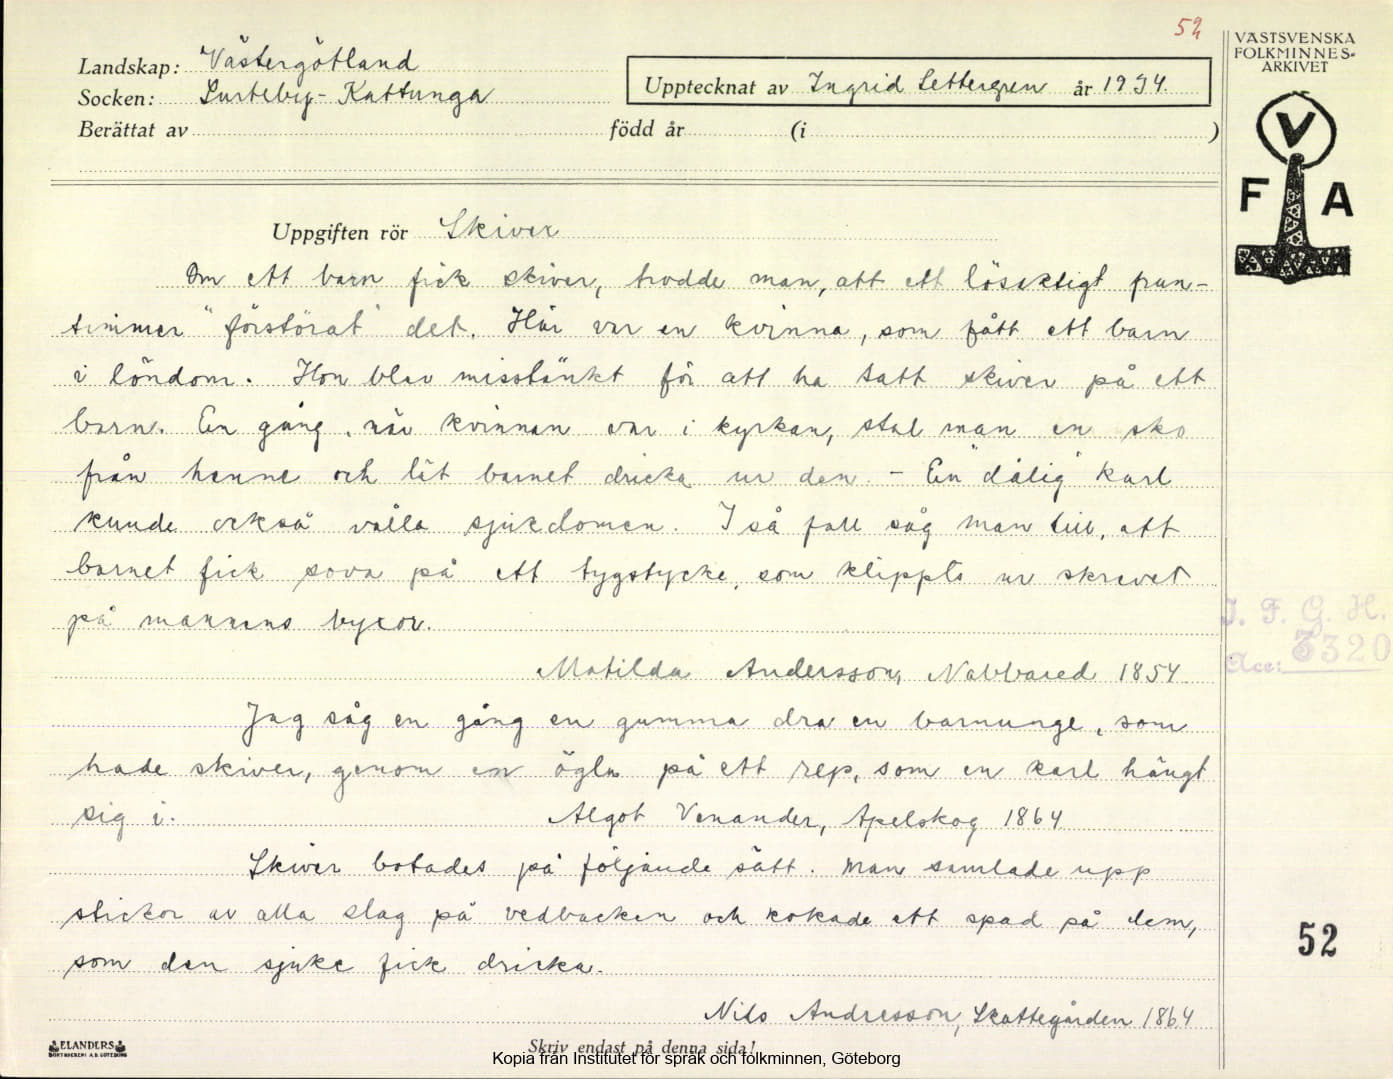 52
VÄSTSVENSKA
FOLKMINNES-
ARKIVET
V
F A
Landskap: Västergötland
Socken: Surteby-Kattunga
Upptecknat av Ingrid Settergren år 1934.
Berättat av född år (i )
Uppgiften rör Skiver
Om ett barn fick skiver, trodde man, att ett lösaktigt frun-
timmer "förstörat" det. Här var en kvinna, som fått ett barn
i löndom. Hon blev misstänkt för att ha satt skiver på ett
barn. En gång, när kvinnan var i kyrkan, stal man en sko
från henne och lät barnet dricka ur den. - En "dålig" karl
kunde också vålla sjukdomen. I så fall såg man till, att
barnet fick sova på ett tygstycke, som klippts ur skrevet
på mannens byxor.
Matilda Andersson, Nabbared 1854.
Jag såg en gång en gumma dra en barnunge, som
hade skiver, genom en ögla på ett rep, som en karl hängt
sig i.
Algot Venander, Apelskog 1864
Skiver botades på följande sätt. Man samlade upp
stickor av alla slag på vedbacken och kokade ett spad på dem,
som den sjuke fick dricka.
Nils Andresson, Skattegården 1864
I. F. G. H.
Acc: 3320
52
ELANDERS
BOKTRYCKERI A.B. GÖTEBORG
Skriv endast på denna sida!
Kopia från Institutet för språk och folkminnen, Göteborg